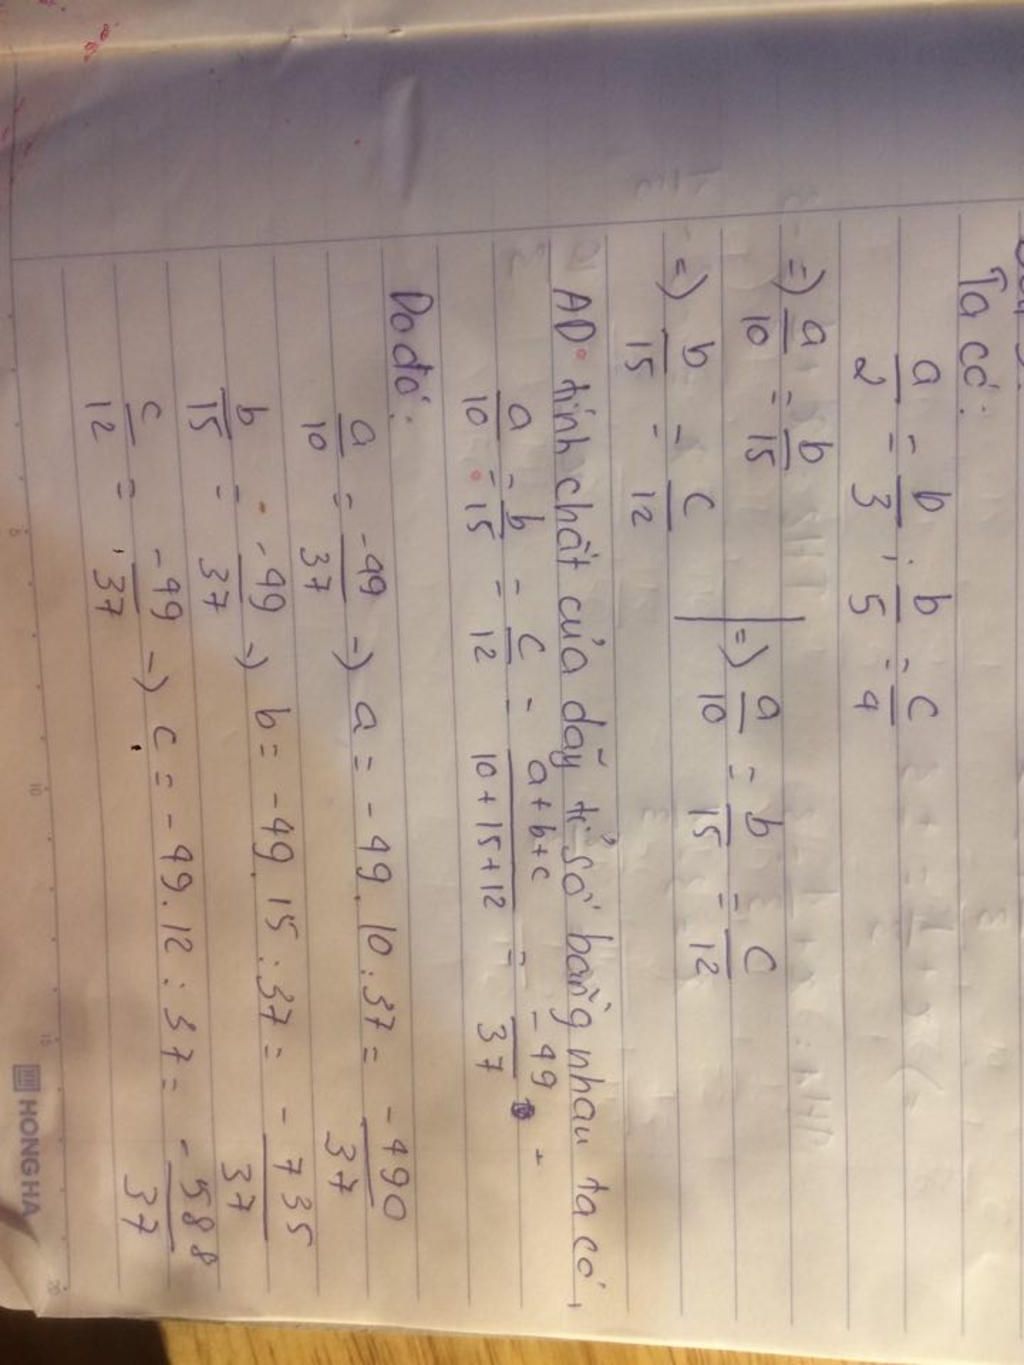 Ta có:
a/2 = b/3 ; b/5 = c/4
=) a/10 = b/15
=) a/10 = b/15 = c/12
=) b/15 = c/12
AD tính chất của dãy tỉ số bằng nhau ta có,
a/10 = b/15 = c/12 = a+b+c/10+15+12 = -49/37
Do đó:
a/10 = -49/37 =) a = -49.10:37 = -490/37
b/15 = -49/37 =) b = -49.15:37 = -735/37
c/12 = -49/37 =) c = -49.12:37 = -588/37
HONG HA
5
10
15
20